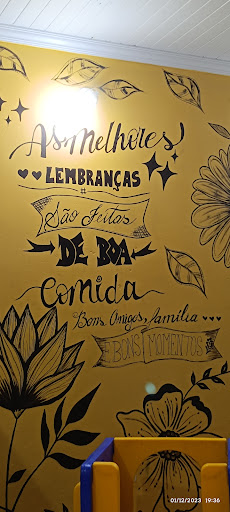 As melhores
LEMBRANÇAS
São Feitas
DE BOA
Comida
Bons Amigos, família
E BONS MOMENTOS
01/12/2023 19:36